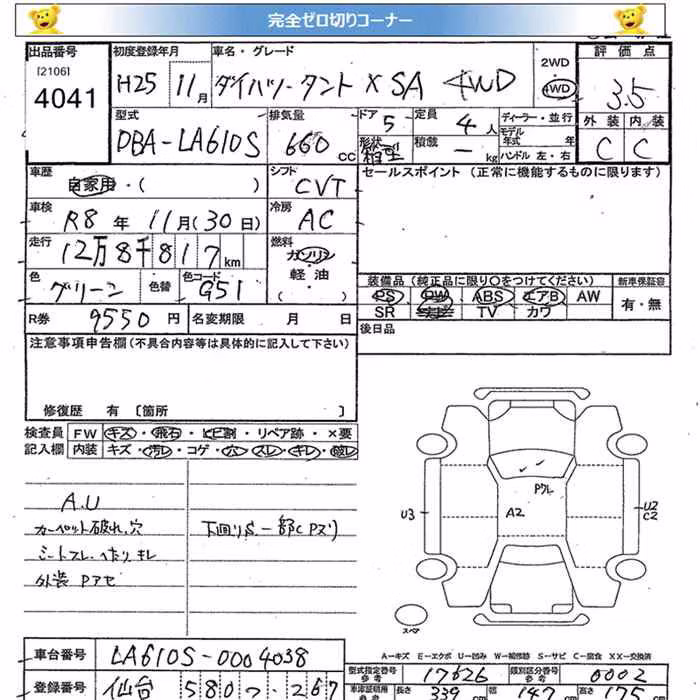 完全ゼロ切りコーナー
出品番号 初度登録年月 車名・グレード 評価点
[2106]
4041
H25 11月 ダイハツ タント X SA 4WD
2WD
4WD
3.5
型式 排気量 ドア 定員 ディーラー・並行 外装 内装
DBA-LA610S 660 CC 5 4人
モデル年式 年
形状 箱型 積載 - kg ハンドル 左・右
C C
車歴 シフト セールスポイント (正常に機能するものに限ります)
自家用・( ) CVT
車検 R8年 11月(30日) 冷房 AC
走行 12万8千817km 燃料 ガソリン
軽油
( )
色 グリーン 色替 色コード G51
装備品 (純正品に限り○をつけてください) 新車保証容
PS PW ABS エアB AW 有・無
SR TV カワ
R券 9550円 名変期限 月 日 後日品
注意事項申告欄(不具合内容等は具体的に記入して下さい)
修復歴 有 〔箇所 〕
検査員 FW キズ・飛石・ヒビ割・リペア跡・×要
記入欄 内装 キズ・汚レ・コゲ・穴・スレ・キレ・破レ
A.U
カーペット破れ、穴 下回りS一部(Pズ)
シートスレ・へたり キレ
外装 Pアセ
Pクレ
U3
A2
U2
C2
スペア
A-キズ E-エクボ U-凹み W-補修跡 S-サビ C-腐食 XX-交換済
車台番号 LA610S-0004038
型式指定番号 参考 17626 類別区分番号 参考 0002
登録番号 仙台 580 267
車庫証明用 参考 長さ 339cm 幅 147cm 高さ 175cm